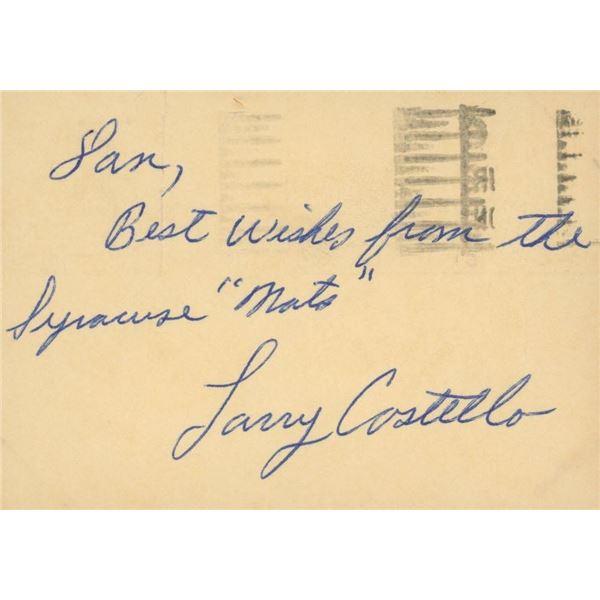 Dan,
Best Wishes from the
Syracuse "Nats"
Larry Costello